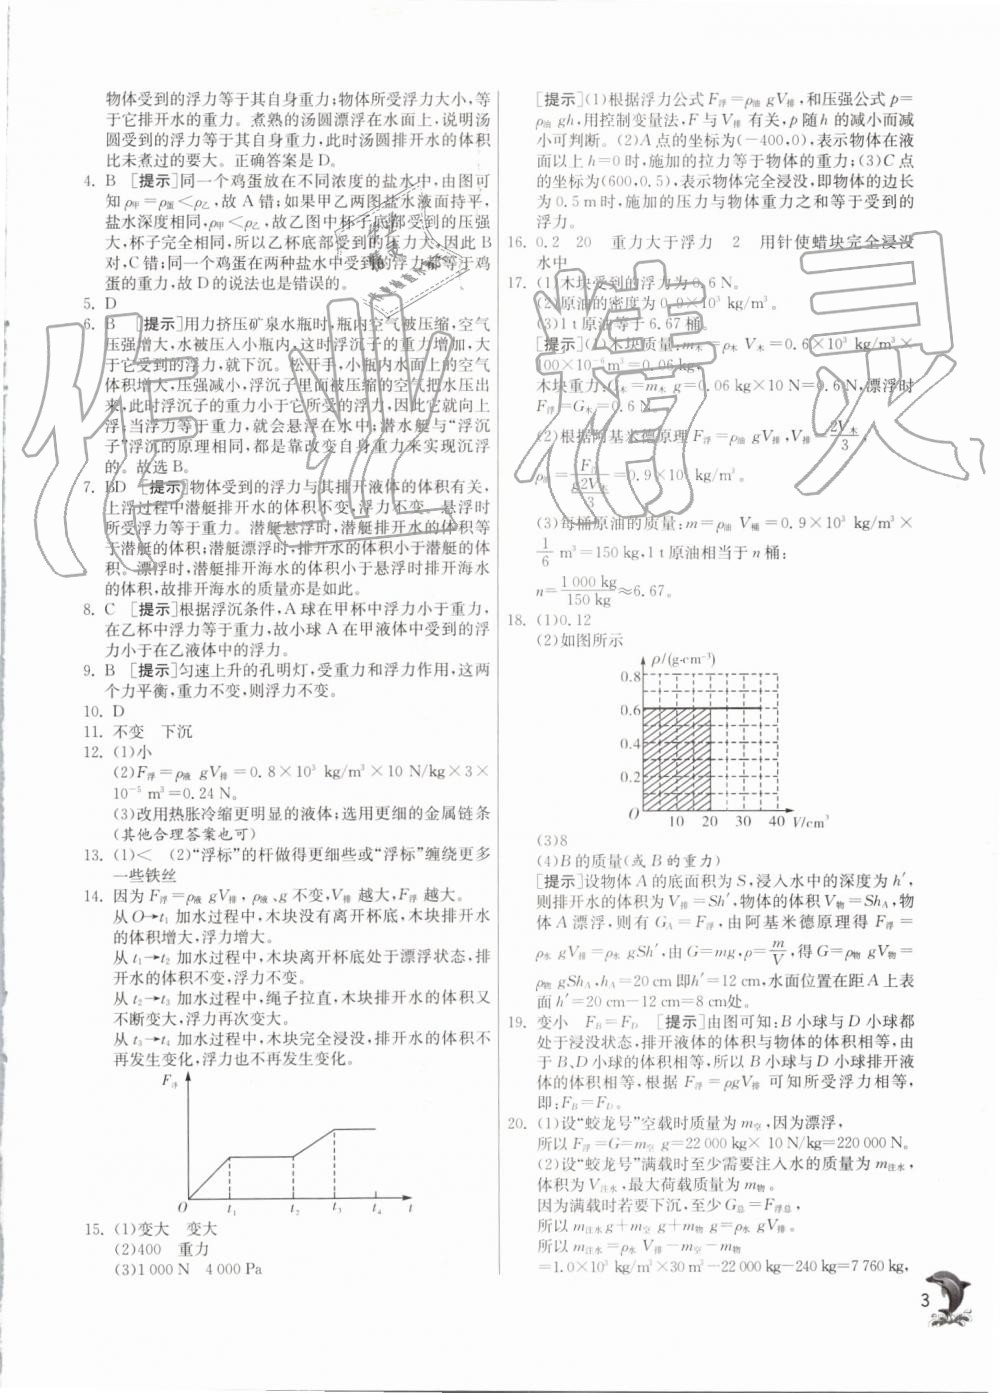 物体受到的浮力等于其自身重力;物体所受浮力大小,等
于它排开水的重力。煮熟的汤圆漂浮在水面上,说明汤
圆受到的浮力等于其自身重力,此时汤圆排开水的体积
比未煮过的要大。正确答案是D。
4. B [提示]同一个鸡蛋放在不同浓度的盐水中,由图可
知ρ甲=ρ蛋<ρ乙,故A错;如果甲乙两图盐水液面持平,
盐水深度相同,ρ甲<ρ乙,故乙图中杯子底部受到的压强
大,杯子完全相同,所以乙杯底部的压力大,因此B
对,C错;同一鸡蛋在两种盐水中受到的浮力都等于鸡
蛋的重力,故D的说法也是错误的。
5. D
6. B [提示]用力挤压矿泉水瓶时,瓶内空气被压缩,空气
压强增大,水被压入小瓶内,这时浮沉子的重力增加,大
于它受到的浮力,就下沉。松开手,小瓶内水面上的空气
体积增大,压强减小,浮沉子里面被压缩的空气把水压出
来,此时浮沉子的重力小于它所受的浮力,因此它就向上
浮;当浮力等于重力时,就会悬浮在水中;潜水艇与“浮沉
子”浮沉的原理相同,都是靠改变自身重力来实现沉浮
的。故选B。
7. BD [提示]物体受到的浮力与其排开液体的体积有关,
上浮过程中潜艇排开水的体积不变,浮力不变。悬浮时
所受浮力等于重力。潜艇悬浮时,排开水的体积等
于潜艇的体积;潜艇漂浮时,排开水的体积小于潜艇的
体积。漂浮时,潜艇排开海水的体积小于悬浮时排开海水
的体积,故排开海水的质量亦是如此。
8. C [提示]根据浮沉条件,A球在甲杯中浮力小于重力,
在乙杯中浮力等于重力,故小球A在甲液体中受到的浮
力小于在乙液体中的浮力。
9. B [提示]匀速上升的孔明灯,受重力和浮力作用,这两
个力平衡,重力不变,则浮力不变。
10. D
11. 不变 下沉
12. (1)小
(2)F浮=ρ液 gV排=0.8×10³ kg/m³×10 N/kg×3×
10⁻⁵ m³=0.24 N。
(3)改用热胀冷缩更明显的液体;选用更细的金属链条
(其他合理答案也可)
13. (1)< (2)“浮标”的杆做得更细些或“浮标”缠绕更多
一些铁丝
14. 因为F浮=ρ液 gV排,ρ液、g不变,V排 越大,F浮 越大。
从O→t₁ 加水过程中,木块没有离开杯底,木块排开水
的体积增大,浮力增大。
从t₁→t₂ 加水过程中,木块离开杯底处于漂浮状态,排
开水的体积不变,浮力不变。
从t₂→t₃ 加水过程中,绳子拉直,木块排开水的体积又
不断变大,浮力再次变大。
从t₃→t₄ 加水过程中,木块完全浸没,排开水的体积不
再发生变化,浮力也不再发生变化。
F浮
O t₁ t₂ t₃ t₄ t
15. (1)变大 变大
(2)400 重力
(3)1 000 N 4 000 Pa
[提示](1)根据浮力公式F浮=ρ油 gV排,和压强公式p=
ρ油 gh,用控制变量法,F与V排 有关,p随h的减小而减
小可判断。(2)A点的坐标为(-400,0),表示物体在液
面以上h=0时,施加的拉力等于物体的重力;(3)C点
的坐标为(600,0.5),表示物体完全浸没,即物体的边长
为0.5 m时,施加的压力与物体重力之和等于受到的
浮力。
16. 0.2 20 重力大于浮力 2 用针使蜡块完全浸没
水中
17. (1)木块受到的浮力为0.6 N。
(2)原油的密度为0.9×10³ kg/m³。
(3)1 t原油等于6.67桶。
[提示](1)木块质量:m=ρ木 V木=0.6×10³ kg/m³×
100×10⁻⁶ m³=0.06 kg,
木块重力:G木=m木 g=0.06 kg×10 N=0.6 N,漂浮时
F浮=G木=0.6 N。
(2)根据阿基米德原理F浮=ρ油 gV排,V排=2V木/3,
ρ油=F浮/(g2V木/3)=0.9×10³ kg/m³。
(3)每桶原油的质量:m=ρ油 V桶=0.9×10³ kg/m³×
1/6 m³=150 kg,1 t原油相当于n桶:
n=1 000 kg/150 kg≈6.67。
18. (1)0.12
(2)如图所示
ρ/(g·cm⁻³)
0.8
0.6
0.4
0.2
O 10 20 30 40 V/cm³
(3)8
(4)B的质量(或B的重力)
[提示]设物体A的底面积为S,浸入水中的深度为h′,
则排开水的体积为V排=Sh′,物体的体积V物=ShA,物
体A漂浮,则有GA=F浮,由阿基米德原理得F浮=
ρ水 gV排=ρ水 gSh′,由G=mg,ρ=m/V,得G=ρ物 gV物=
ρ物 gShA,hA=20 cm即h′=12 cm,水面位置在距A上表
面h′=20 cm-12 cm=8 cm处。
19. 变小 FB=FD [提示]由图可知:B小球与D小球都
处于浸没状态,排开液体的体积与物体的体积相等,由
于B、D小球的体积相等,所以B小球与D小球排开液
体的体积相等,根据F浮=ρgV排 可知所受浮力相等,
即:FB=FD。
20. (1)设“蛟龙号”空载时质量为m空,因为漂浮,
所以F浮=G=m空 g=22 000 kg×10 N/kg=220000 N。
(2)设“蛟龙号”满载时至少需要注入水的质量为m注水,
体积为V注水,最大荷载质量为m物。
因为满载时若要下沉,至少G总=F浮总,
所以m注水 g+m空 g+m物 g=ρ水 gV排。
所以m注水=ρ水 V排-m空-m物
=1.0×10³ kg/m³×30 m³-22 000 kg-240 kg=7 760 kg,
3
作业精灵